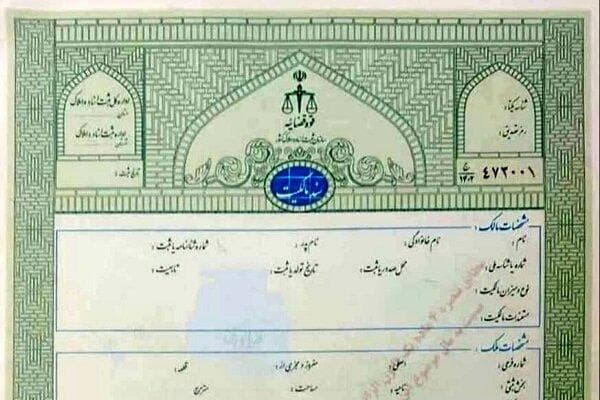 قوه قضائیه
سازمان ثبت اسناد و املاک کشور
اداره کل ثبت اسناد و املاک
استان:
اداره ثبت اسناد و املاک
شهرستان:
تاریخ ثبت:
شناسه یکتا:
رمز تصدیق:
۴۷۲۰۰۱ ج ۱۴۰۲
سند مالکیت
مشخصات مالک:
نام: نام خانوادگی: نام پدر: شماره شناسنامه یا ثبت:
شماره یا شناسه ملی: محل صدور یا ثبت: تاریخ تولد یا ثبت: تابعیت:
نوع و میزان مالکیت:
مستندات مالکیت:
مشخصات ملک:
شماره فرعی: اصلی: مفروز و مجزی از: قطعه:
بخش ثبتی: ناحیه: مساحت: مترمربع